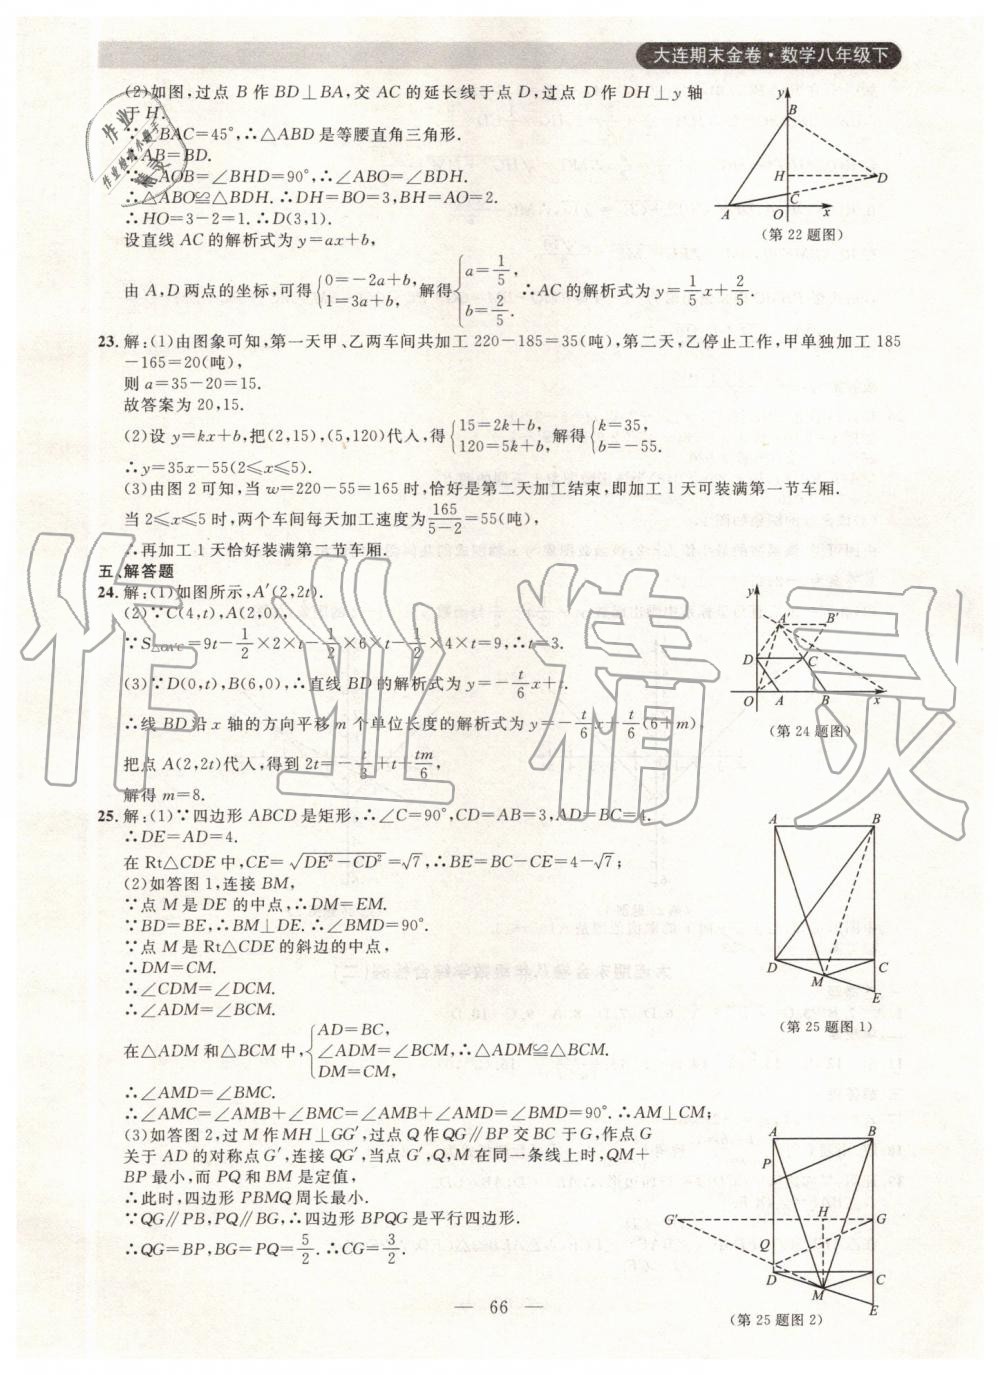 大连期末金卷·数学八年级下
(2)如图,过点 B 作 BD⊥BA,交 AC 的延长线于点 D,过点 D 作 DH⊥y 轴
于 H.
∵∠BAC=45°,∴△ABD 是等腰直角三角形.
∴AB=BD.
∵∠AOB=∠BHD=90°,∴∠ABO=∠BDH.
∴△ABO≌△BDH.∴DH=BO=3,BH=AO=2.
∴HO=3-2=1.∴D(3,1).
设直线 AC 的解析式为 y=ax+b,
由 A,D 两点的坐标,可得{0=-2a+b, 1=3a+b, 解得{a=1/5, b=2/5. ∴AC 的解析式为 y=1/5x+2/5.
y
B
H
D
C
A
O
x
(第 22 题图)
23.解:(1)由图象可知,第一天甲、乙两车间共加工 220-185=35(吨),第二天,乙停止工作,甲单独加工 185
-165=20(吨),
则 a=35-20=15.
故答案为 20,15.
(2)设 y=kx+b,把(2,15),(5,120)代入,得{15=2k+b, 120=5k+b, 解得{k=35, b=-55.
∴y=35x-55(2≤x≤5).
(3)由图 2 可知,当 w=220-55=165 时,恰好是第二天加工结束,即加工 1 天可装满第一节车厢.
当 2≤x≤5 时,两个车间每天加工速度为165/5-2=55(吨),
∴再加工 1 天恰好装满第二节车厢.
五、解答题
24.解:(1)如图所示,A′(2,2t).
(2)∵C(4,t),A(2,0),
=9t-1/2×2×t-1/2×6×t-1/2×4×t=9,∴t=3.
(3)∵D(0,t),B(6,0),∴直线 BD 的解析式为 y=-t/6x+t.
∴线 BD 沿 x 轴的方向平移 m 个单位长度的解析式为 y=-t/6x+t/6(6+m).
把点 A(2,2t)代人,得到 2t=-t/3+t+tm/6,
解得 m=8.
y
A′
B′
D
C
O
A
B
x
(第 24 题图)
25.解:(1)∵四边形 ABCD 是矩形,∴∠C=90°,CD=AB=3,AD=BC=4.
∴DE=AD=4.
在 Rt△CDE 中,CE=√DE²-CD²=√7,∴BE=BC-CE=4-√7;
(2)如答图 1,连接 BM,
∵点 M 是 DE 的中点,∴DM=EM.
∵BD=BE,∴BM⊥DE.∴∠BMD=90°.
∵点 M 是 Rt△CDE 的斜边的中点,
∴DM=CM.
∴∠CDM=∠DCM.
∴∠ADM=∠BCM.
在△ADM 和△BCM 中,{AD=BC, ∠ADM=∠BCM, DM=CM, ∴△ADM≌△BCM.
∴∠AMD=∠BMC.
∴∠AMC=∠AMB+∠BMC=∠AMB+∠AMD=∠BMD=90°.∴AM⊥CM;
(3)如答图 2,过 M 作 MH⊥GG′,过点 Q 作 QG∥BP 交 BC 于 G,作点 G
关于 AD 的对称点 G′,连接 QG′,当点 G′,Q,M 在同一条线上时,QM+
BP 最小,而 PQ 和 BM 是定值,
∴此时,四边形 PBMQ 周长最小.
∵QG∥PB,PQ∥BG,∴四边形 BPQG 是平行四边形.
∴QG=BP,BG=PQ=5/2.∴CG=3/2.
A
B
D
C
M
E
(第 25 题图 1)
A
B
P
G′
H
G
Q
D
C
M
E
(第 25 题图 2)
— 66 —
作业精灵